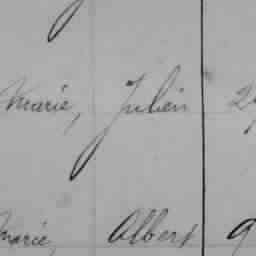 Marie, Julien
Marie, Albert 9